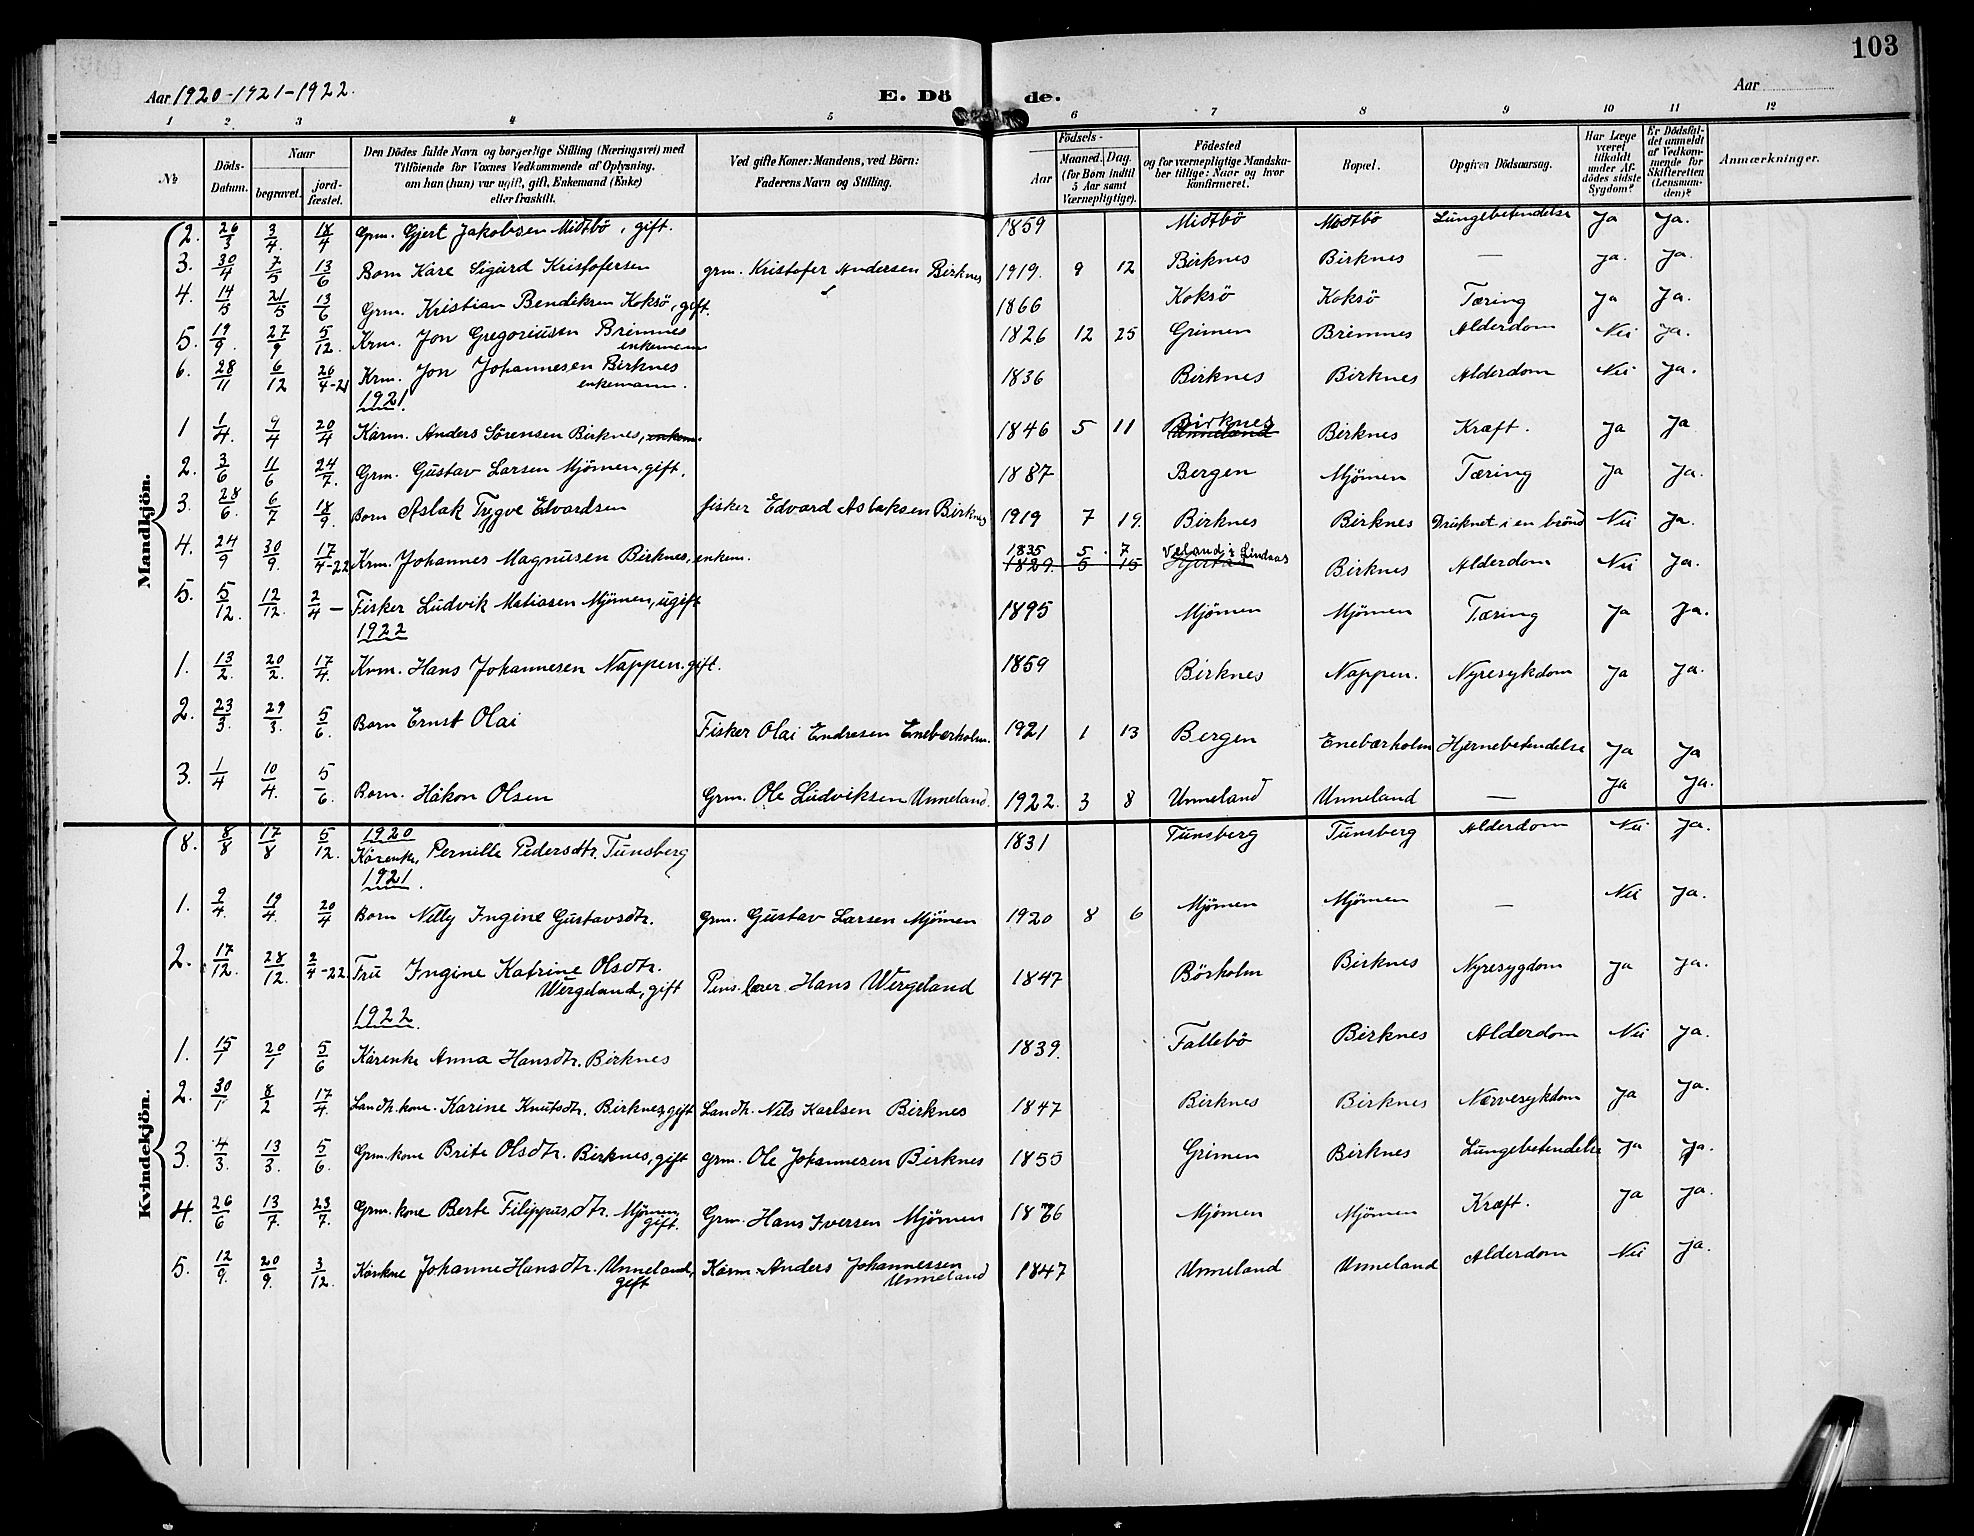 103
Aar 1920-1921-1922.
E. Dö de.
Aar
1 2. 3 4 5 6 7 8 9 10 11 12
No
Döds-Datum.
Naar
begravet.
jord-fæstet.
Den Dödes fulde Navn og borgerlige Stilling (Næringsvei) med
Tilföiende for Voxnes Vedkommende af Oplysning,
om han (hun) var ugift, gift, Enkemand (Enke)
eller fraskilt.
Ved gifte Koner: Mandens, ved Börn:
Faderens Navn og Stilling.
Födsels-
Aar
Maaned. Dag.
(for Börn indtil
5 Aar samt
Værnepligtige).
Födested
og for værnepligtige Mandska-
ber tillige: Naar og hvor
konfirmeret.
Bopæl.
Opgiven Dödsaarsag.
Har Læge
været
tilkaldt
under Af-
dödes sidste
Sygdom?
Er Dödsfal-
det anmeldt
af Vedkom-
mende for
Skifteretten
(Lensman-
den)?
Anmærkninger.
Mandkjön.
2. 26/3 3/4. 18/4 Grm. Gjert Jakobsen Midtbö, gift. 1859 Midtbö Midtbö Lungebetendelse Ja Ja.
3. 30/4 7/5 13/6 Barn Kåre Sigurd Kristofersen grm. Kristofer Andersen Birknes 1919. 9 12 Birknes Birknes — ja. Ja.
4. 14/5 21/5 13/6 Grm. Kristian Bendiksen Koksö, gift. 1866 Koksö Koksö Tæring Ja Ja.
5. 19/9. 27/9 5/12. Krm. Jon Gregoriusen Brimnes enkemann 1826 12 25 Grimen Brimnes Alderdom Nei Ja.
6. 28/11 6/12 26/4-21 Krm. Jon Johannesen Birknes enkemann. 1836 Birknes Birknes Alderdom Nei Ja.
1921.
1 1/4. 9/4 20/4 Kårm. Anders Sörensen Birknes, enkem. 1846 5 11 Birknes Unneland Birknes Kræft. Ja Ja
2. 3/6 11/6 24/7. Grm. Gustav Larsen Mjömen, gift. 1887 Bergen Mjömen Tæring Ja Ja.
3. 28/6. 6/7 18/9. Barn Aslak Trygve Edvardsen fisker Edvard Aslaksen Birknes 1919 7 19. Birknes Birknes Druknet i en brönd Nei Ja.
4. 24/9 30/9. 17/4-22 Krm. Johannes Magnusen Birknes, enkem. 1835 5 7 Væland i Lindaas 1829. 5 15 Hjertås Birknes Alderdom Nei Ja.
5. 5/12. 12/12. 2/4 — Fisker Ludvik Matiasen Mjömen, ugift 1895 Mjömen Mjömen Tæring Ja Ja.
1922
1. 13/2. 20/2. 17/4. Kvm. Hans Johannesen Nappen. gift. 1859 Birknes Nappen. Nyresykdom Ja Ja.
2. 23/3. 29/3. 5/6. Barn Ernst Olai Fisker Olai Endresen Enebærholm. 1921 1 13 Bergen Enebærholm Hjernebetendelse Ja Ja
3. 1/4 10/4. 5/6. Barn. Håkon Olsen Grm. Ole Ludviksen Unneland. 1922. 3 8 Unneland Unneland — Ja Ja.
Kvindekjön.
1920
8. 8/8 17/8 5/12. Kårenke, Pernille Pedersdtr. Tunsberg 1831 Tunsberg Tunsberg Alderdom Nei Ja.
1921.
1. 9/4. 19/4. 20/4 Barn Nelly Ingine Gustavsdtr. Grm. Gustav Larsen Mjömen 1920 8 6 Mjömen Mjömen — Nei Ja.
2. 17/12. 28/12. 2/4-22 Fru Ingine Katrine Olsdtr. Wergeland, gift Pens. lærer Hans Wergeland 1847 Börholm Birknes Nyresygdom Ja Ja.
1922.
1. 15/1 20/1 5/6 Kårenke Anna Hansdtr. Birknes 1839. Fallebö Birknes Alderdom Nei Ja.
2. 30/1 8/2 17/4. Landh. kone. Karine Knutsdtr. Birknes, gift Landh. Nils Karlsen Birknes 1847 Birknes Birknes Nærvesykdom Ja Ja.
3. 4/3. 13/3. 5/6. Grm. kone Brite Olsdtr. Birknes, gift grm. Ole Johannesen Birknes 1855 Grimen Birknes Lungebetendelse Ja Ja.
4. 26/6 13/7. 23/7. Grm. kone Berte Filippusdtr. Mjömen, gift. Grm. Hans Iversen Mjömen 1876 Mjömen Mjömen Kræft. Ja Ja.
5. 12/9. 20/9. 3/12. Kårkne Johanne Hansdtr. Unneland, gift Kårm. Anders Johannessen Unneland 1847 Unneland Unneland Alderdom Nei Ja.